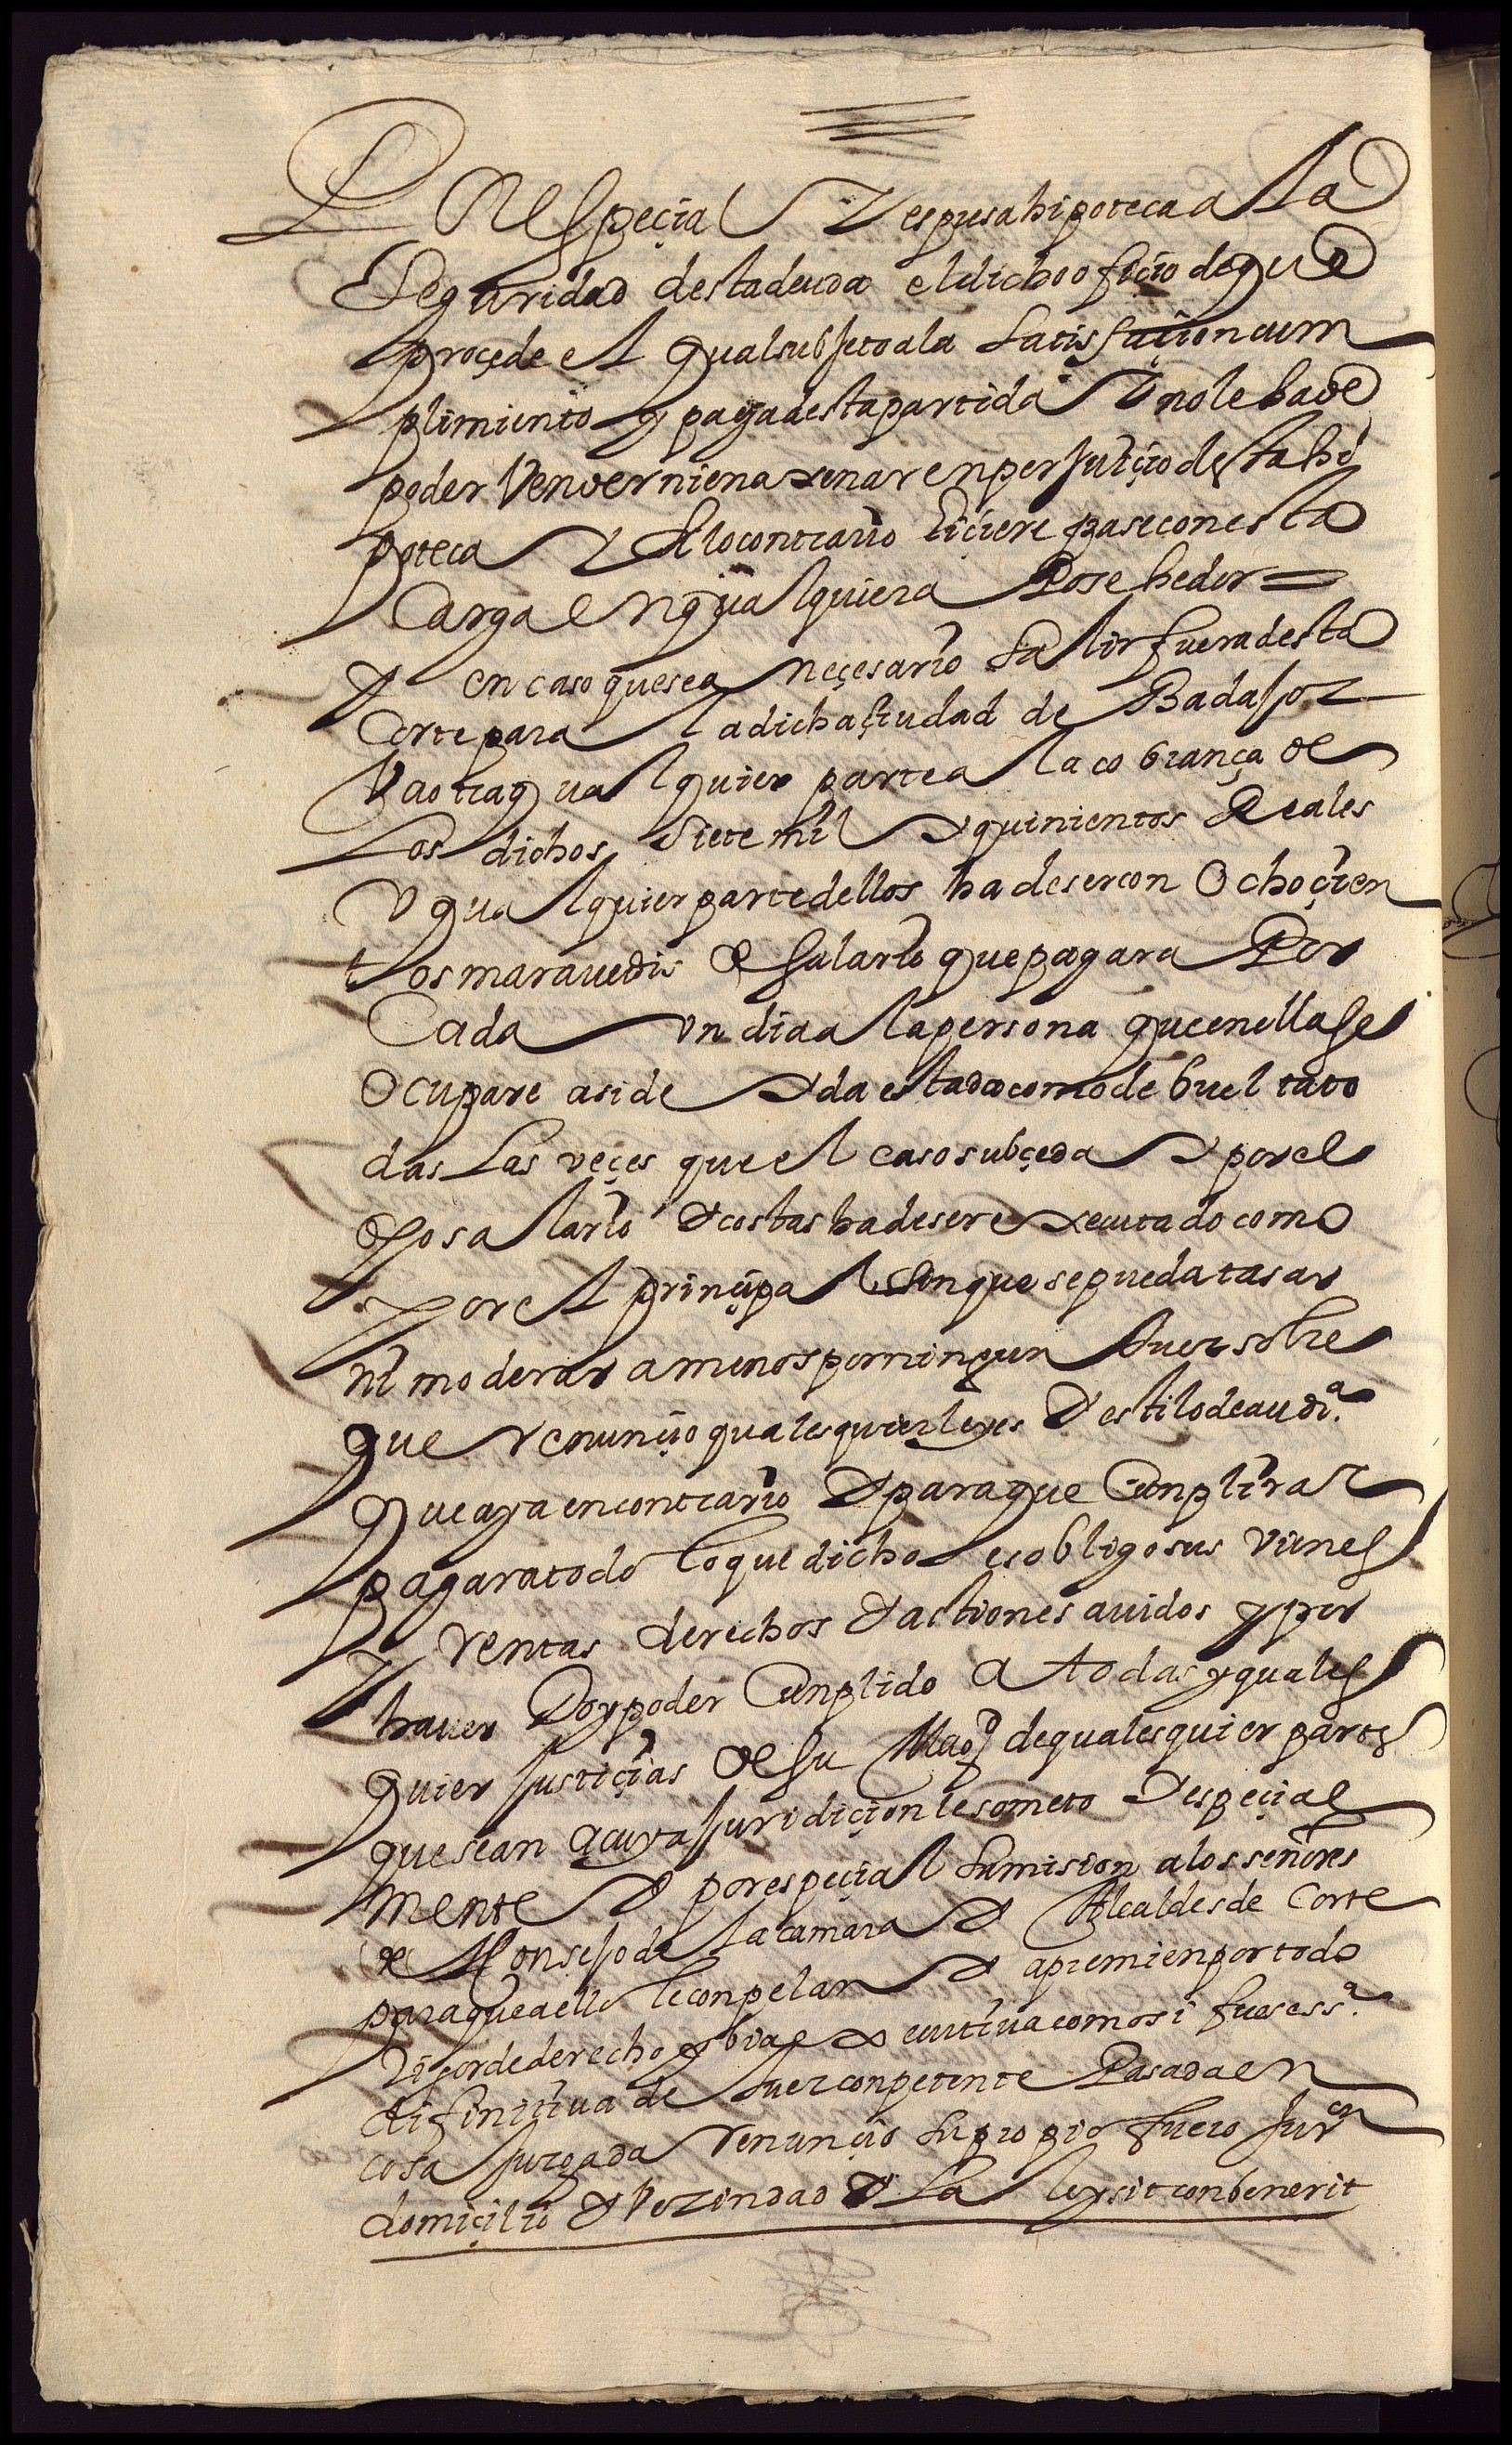 Por especial y espresa hipoteca a la
seguridad desta deuda el dicho oficio de que
proçede el qual subjeto a la satisfaçion cum
plimiento y paga desta partida y no le ha de
poder vender ni enaxenar en perjuiçio desta hi
poteca y si lo contrario hiçiere pase con esta
carga en qualquiera posehedor =
y en caso que sea neçesario salir fuera desta
corte para la dicha çiudad de Badajoz
v a otra qualquier parte a la cobrança de
los dichos siete mil y quinientos Reales
v qualquier parte dellos ha de ser con ochoçien
tos maravedis de salario que pagara por
cada vn dia a la persona que en ella se
ocupare asi de yda estada como de buelta to
das las veçes que el caso subçeda y por el
salario y costas ha de ser executado como
por el prinçipal sin que se pueda tasar
ni moderar a menos por ningun Juez sobre
que renunçio qualesquier leyes y estilo de audiª
que aya en contrario y para que cunplira y
pagara todo lo que dicho es obligo sus vienes
y rentas derechos y actiones auidos y por
hauer Doy poder cunplido a todas y quales
quier justiçias de su Magd de qualesquier partes
que sean a cuya juridiçion le someto y espeçial
mente y por espeçial sumision a los señores
del Consejo de la camara y Alcaldes de Corte
para que a ello le conpelan y apremien por todo
rigor de derecho y bia executiua como si fuese ssª
difinitiua de Juez conpetente Pasada en
cosa juzgada renunçio su propio fuero jurᵒⁿ
domiçilio y vezindad y la ley sit conbenerit